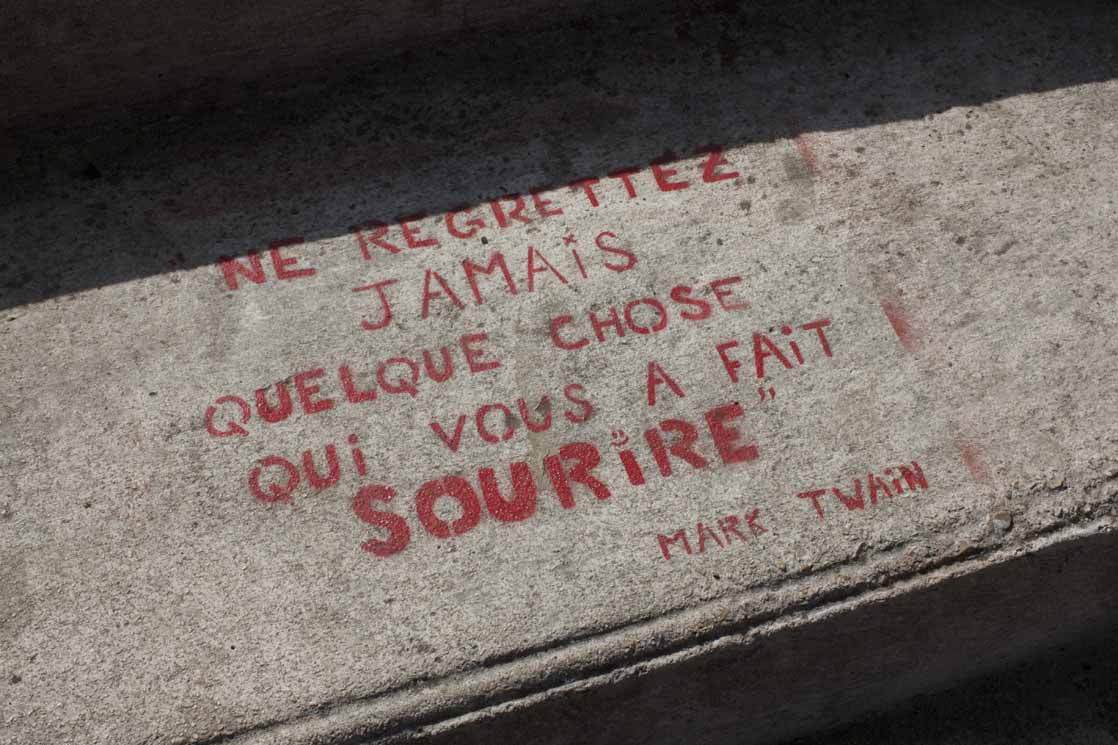 NE REGRETTEZ
JAMAiS
QUELQUE CHOSE
QUi VOUS A FAiT
SOURiRE"
MARK TWAiN